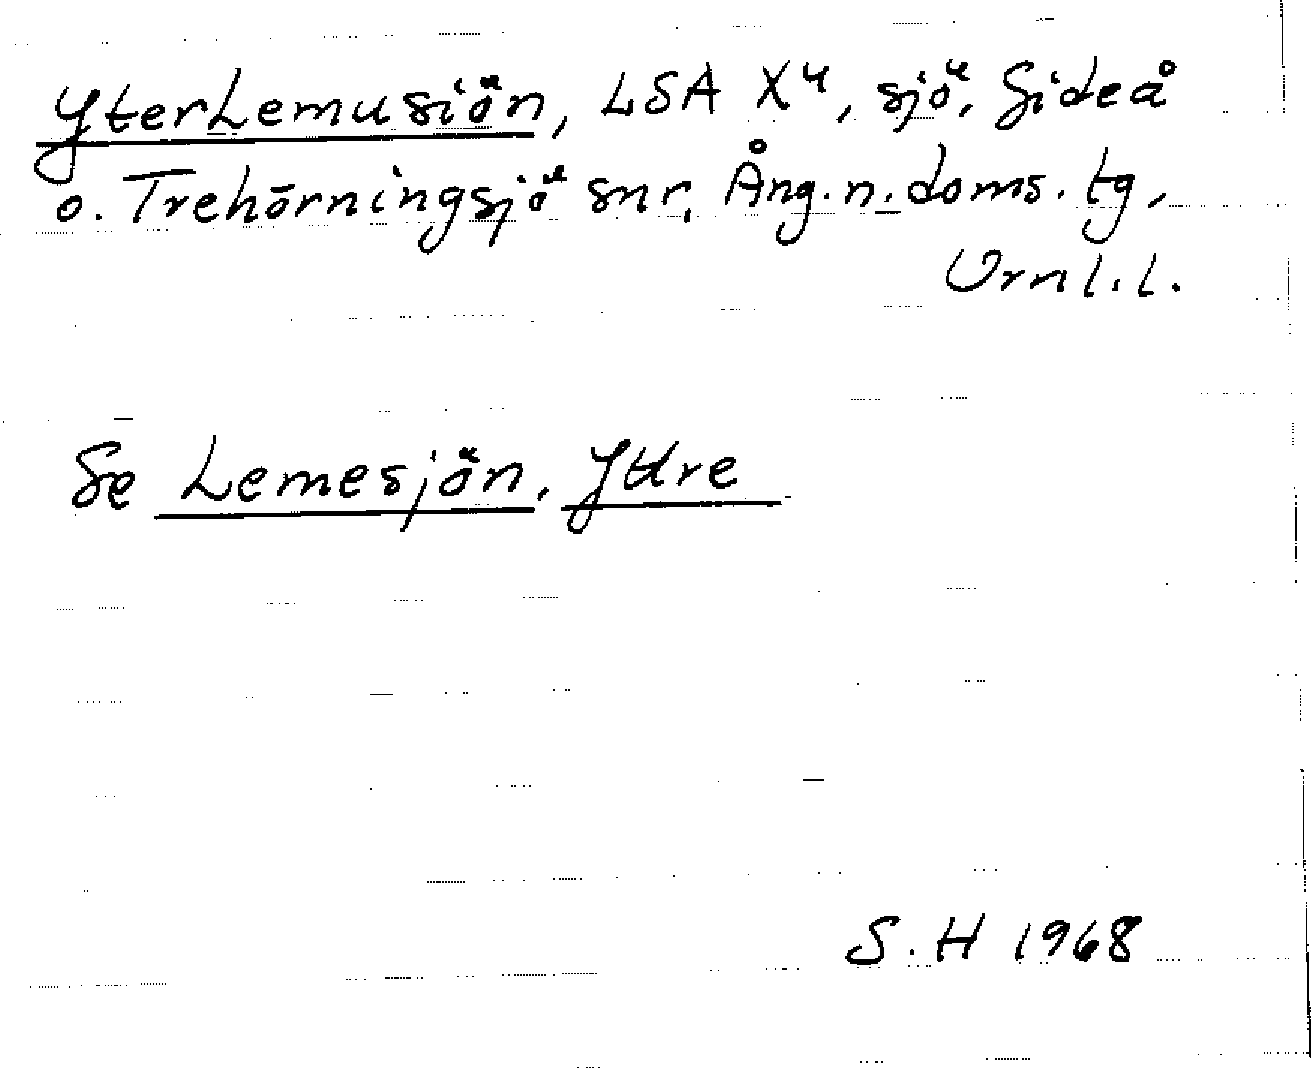 YterLemusiön, LSA X4, sjö, Sideå
o. Trehörningsjö snr, Ång.n.doms.tg,
Vrnl.l.
Se Lemesjön, Yttre
S.H 1968